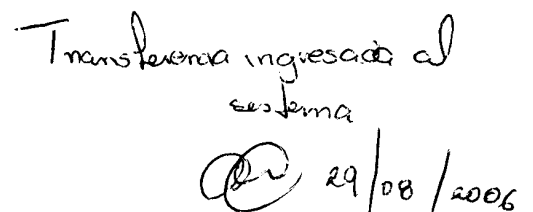 Transferencia ingresada al
sistema
29/08/2006